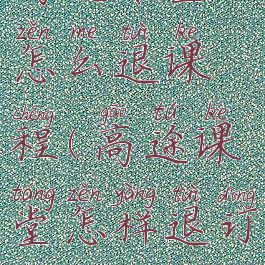 zěn me tuì kè
怎么退课
chéng gāo tú kè
程(高途课
táng zěn yàng tuì dìng
堂怎样退订